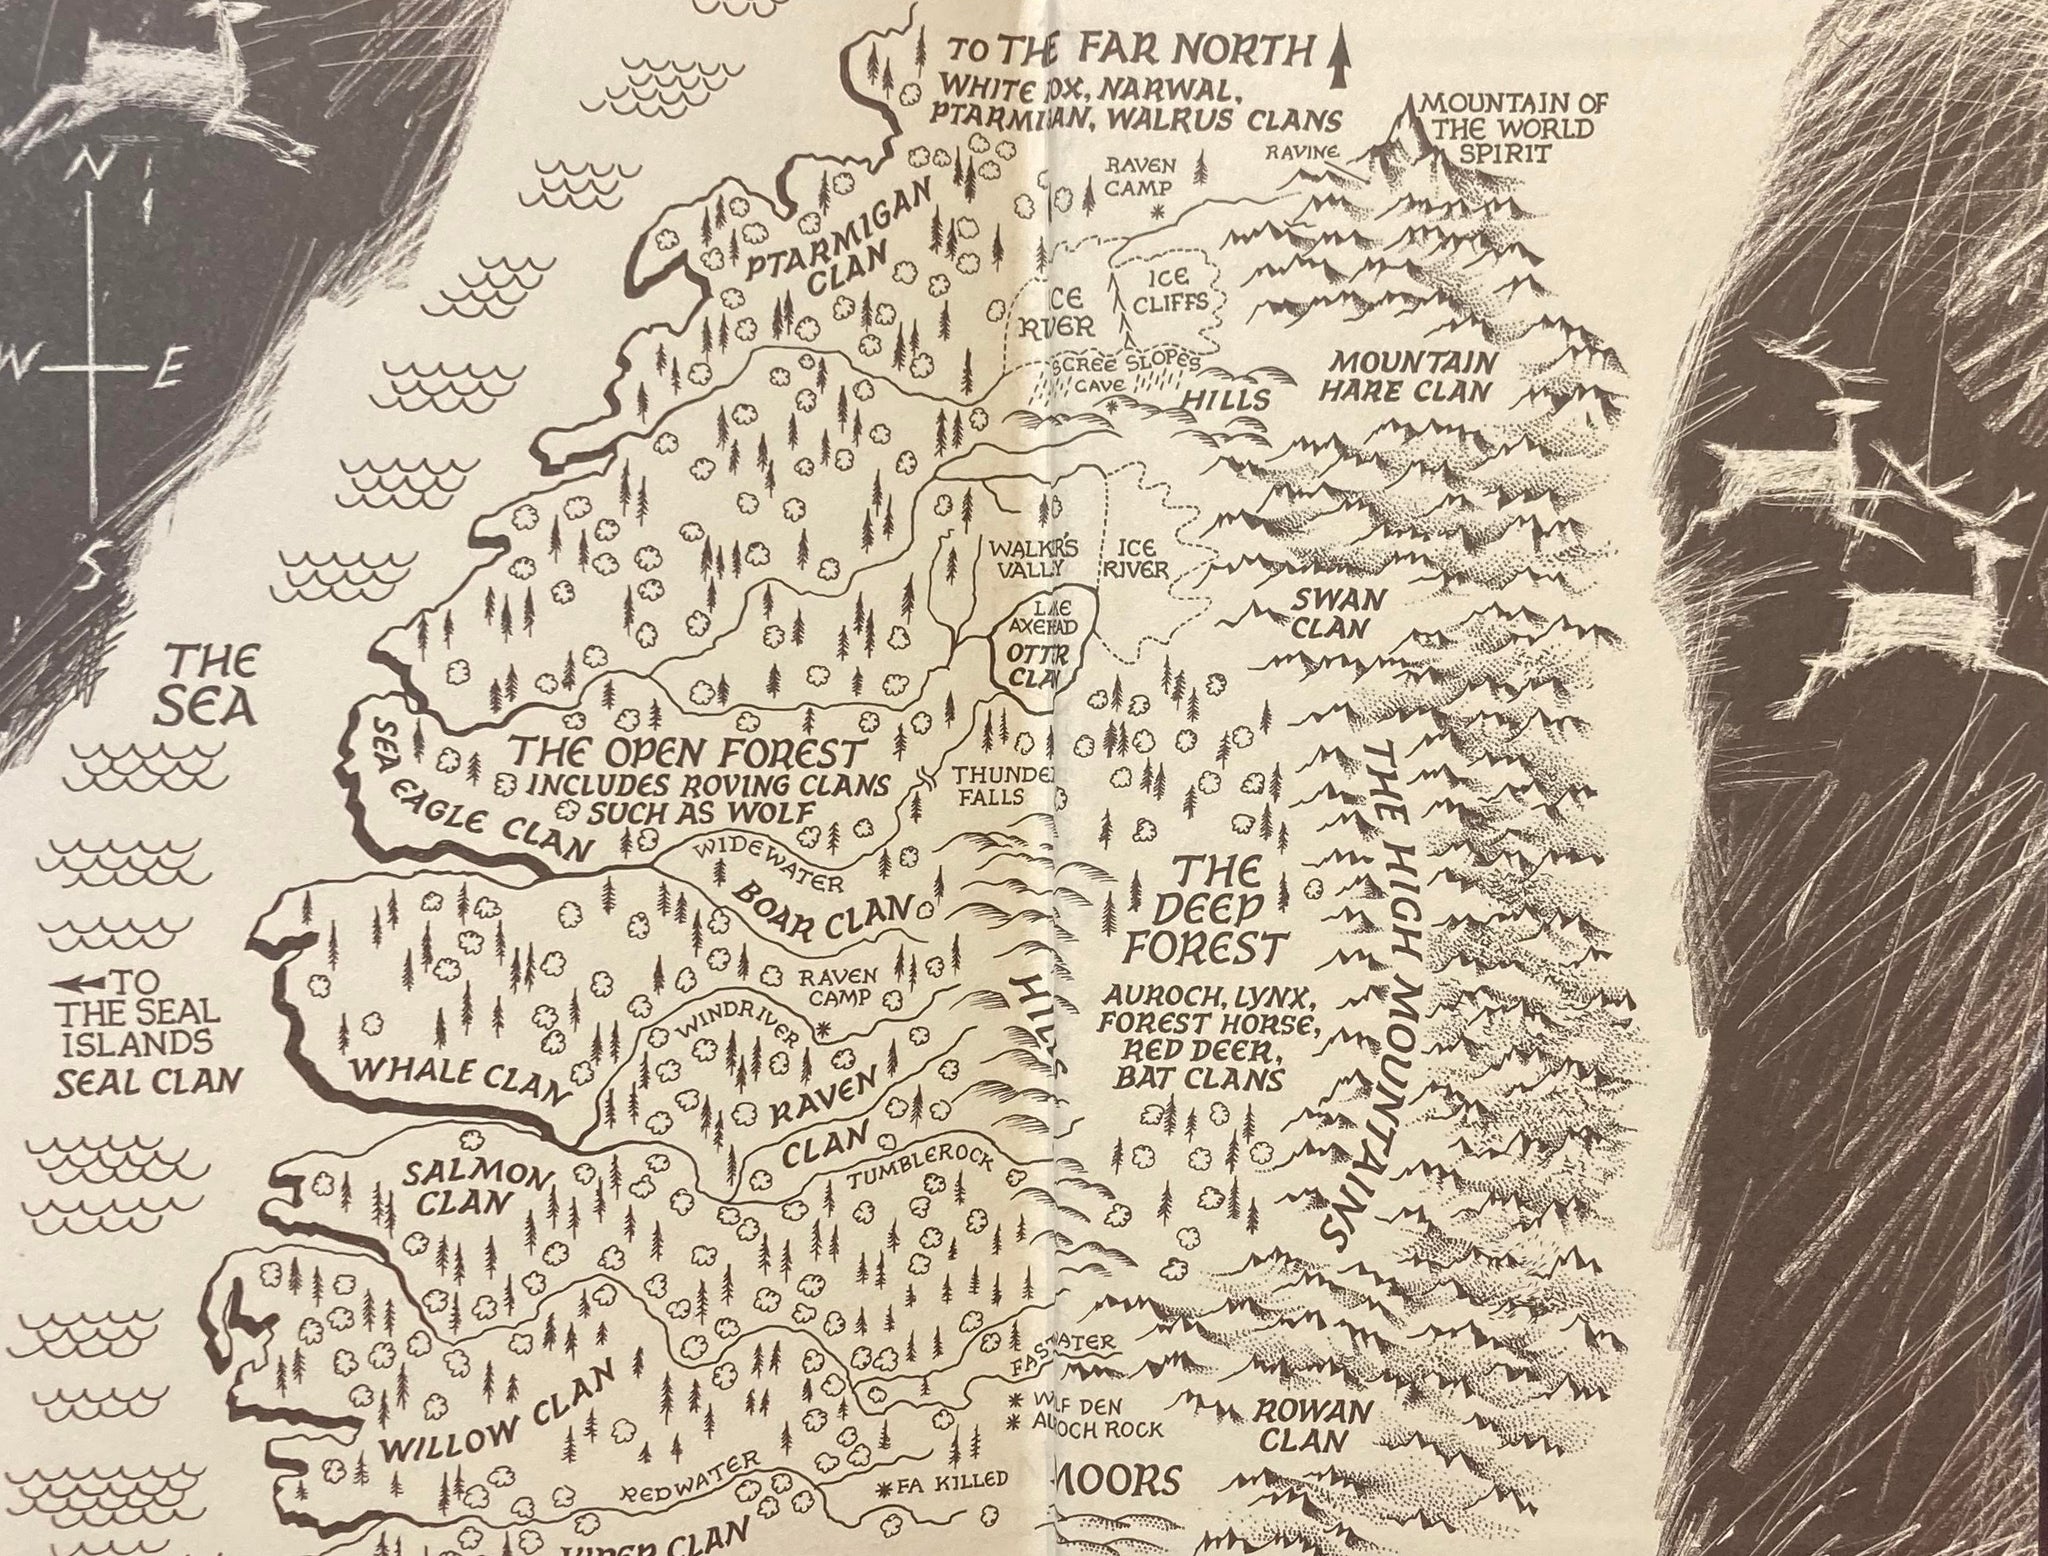 TO THE FAR NORTH
WHITE OX, NARWAL,
PTARMIGAN, WALRUS CLANS
MOUNTAIN OF
THE WORLD
SPIRIT
RAVINE
RAVEN
CAMP
N
W E
S
PTARMIGAN
CLAN
ICE
CLIFFS
ICE
RIVER
SCREE SLOPES
CAVE
HILLS
MOUNTAIN
HARE CLAN
WALKER'S
VALLEY
ICE
RIVER
SWAN
CLAN
LAKE
AXEHEAD
OTTER
CLAN
THE
SEA
SEA EAGLE CLAN
THE OPEN FOREST
INCLUDES ROVING CLANS
SUCH AS WOLF
THUNDER
FALLS
WIDEWATER
BOAR CLAN
THE
DEEP
FOREST
AUROCH, LYNX,
FOREST HORSE,
RED DEER,
BAT CLANS
THE HIGH MOUNTAINS
HILLS
RAVEN
CAMP
WINDRIVER
TO
THE SEAL
ISLANDS
SEAL CLAN
WHALE CLAN
RAVEN
CLAN
TUMBLEROCK
SALMON
CLAN
FASTWATER
WOLF DEN
AUROCH ROCK
ROWAN
CLAN
WILLOW CLAN
REDWATER
FA KILLED
MOORS
VIPER CLAN